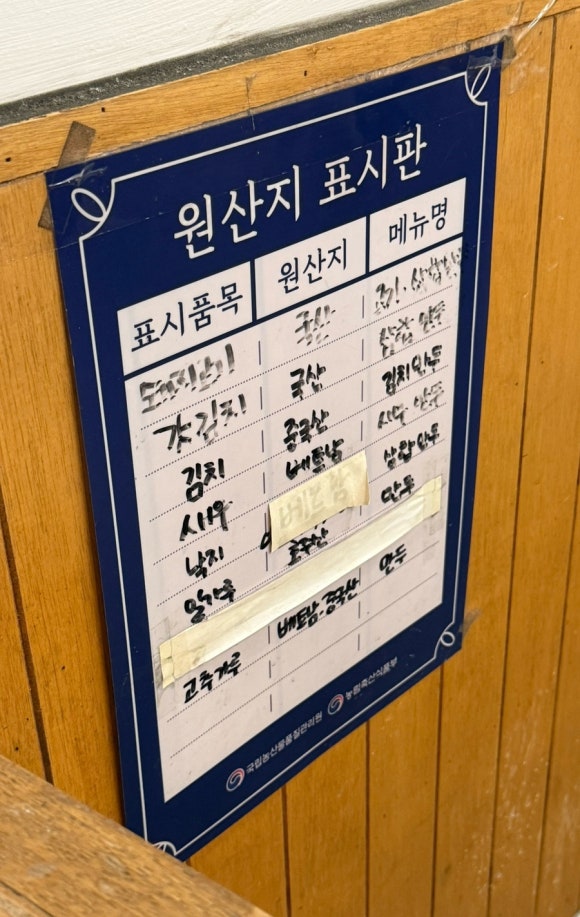 원산지 표시판
표시품목 원산지 메뉴명
돼지고기 국산 고기·삼합만두
갓김치 국산 삼합 만두
김치 중국산 김치만두
새우 베트남 새우 만두
낙지 베트남 삼합만두
밀가루 호주산 만두
고추가루 베트남.중국산 만두
국립농산물품질관리원 농림축산식품부